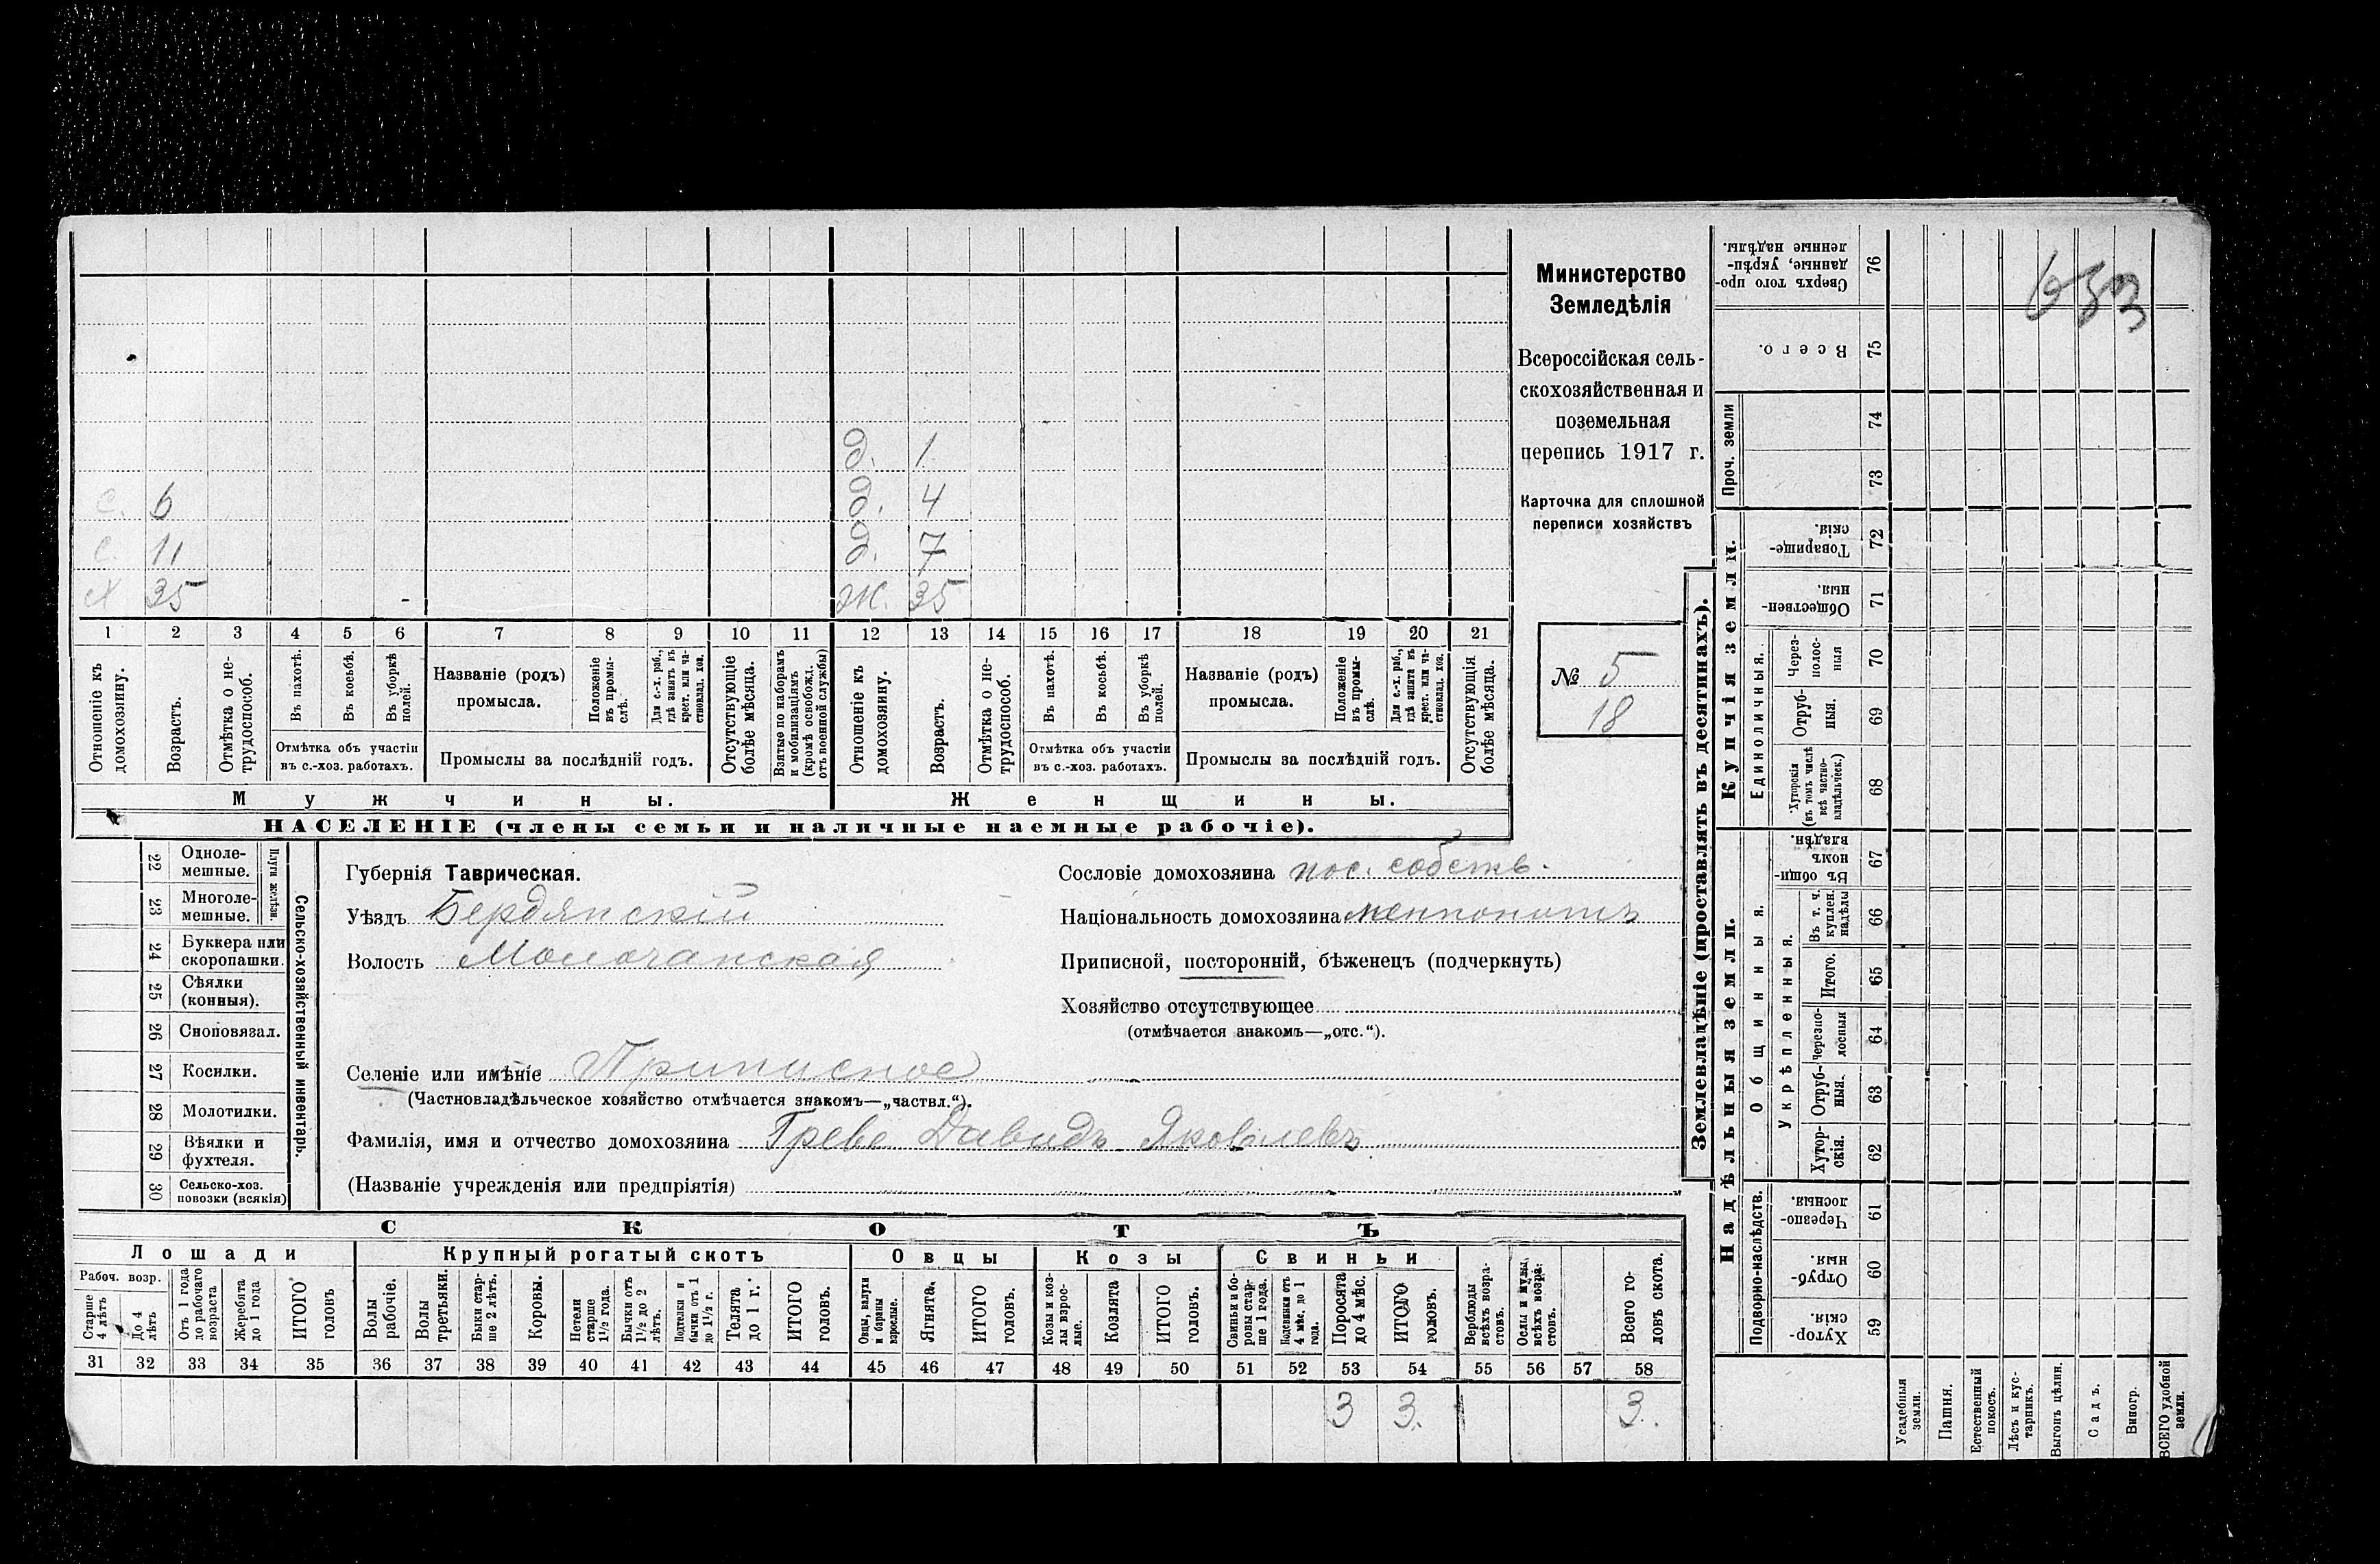 653
Министерство
Земледѣлія
Всероссійская сель-
скохозяйственная и
поземельная
перепись 1917 г.
Карточка для сплошной
переписи хозяйствъ
№ 5
18
д. 1
с. 6 д. 4
с. 11 д. 7
х 35 ж. 35
1 2 3 4 5 6 7 8 9 10 11 12 13 14 15 16 17 18 19 20 21
Отношеніе къ домохозяину.
Возрастъ.
Отмѣтка о не-трудоспособ.
Въ пахотѣ.
Въ косьбѣ.
Въ уборкѣ полей.
Отмѣтка объ участіи
въ с.-хоз. работахъ.
Названіе (родъ)
промысла.
Положеніе въ промы-слѣ.
Для с.-х. раб., гдѣ занятъ въ крест. или ча-стновлад. хоз.
Промыслы за послѣдній годъ.
Отсутствующіе болѣе мѣсяца.
Взятые по наборамъ и мобилизаціямъ (кромѣ освобожд. отъ военной службы)
Отношеніе къ домохозяину.
Возрастъ.
Отмѣтка о не-трудоспособ.
Въ пахотѣ.
Въ косьбѣ.
Въ уборкѣ полей.
Отмѣтка объ участіи
въ с.-хоз. работахъ.
Названіе (родъ)
промысла.
Положеніе въ промы-слѣ.
Для с.-х. раб., гдѣ занята въ крест. или ча-стновлад. хоз.
Промыслы за послѣдній годъ.
Отсутствующія болѣе мѣсяца.
Мужчины. Женщины.
НАСЕЛЕНІЕ (члены семьи и наличные наемные рабочіе).
22 Одноле-мешные.
23 Многоле-мешные.
Плуги желѣзн.
24 Буккера или скоропашки.
25 Сѣялки (конныя).
26 Сноповязал.
27 Косилки.
28 Молотилки.
29 Вѣялки и фухтеля.
30 Сельско-хоз. повозки (всякія)
Сельско-хозяйственный инвентарь.
Губернія Таврическая.
Уѣздъ Бердянскій
Волость Молочанская
Сословіе домохозяина пос. собств.
Національность домохозяина меннонитъ
Приписной, посторонній, бѣженецъ (подчеркнуть)
Хозяйство отсутствующее
(отмѣчается знакомъ—„отс.“).
Селеніе или имѣніе Приписное
(Частновладѣльческое хозяйство отмѣчается знакомъ—„частвл.“).
Фамилія, имя и отчество домохозяина Греве Давидъ Яковлевъ
(Названіе учрежденія или предпріятія)
СКОТЪ
Лошади Крупный рогатый скотъ Овцы Козы Свиньи
Рабоч. возр.
Старше 4 лѣтъ
До 4 лѣтъ
Отъ 1 года до рабочаго возраста
Жеребята до 1 года
ИТОГО головъ
Волы рабочіе.
Волы третьяки.
Быки стар-ше 2 лѣтъ.
Коровы.
Нетели старше 1½ года.
Бычки отъ 1½ до 2 лѣтъ.
Подтелки и бычки отъ 1 до 1½ г.
Телята до 1 г.
ИТОГО головъ.
Овцы, валухи и бараны взрослые.
Ягнята.
ИТОГО головъ.
Козы и коз-лы взрос-лые.
Козлята
ИТОГО головъ.
Свиньи и бо-ровы стар-ше 1 года.
Подсвинки отъ 4 мѣс. до 1 года.
Поросята до 4 мѣс.
ИТОГО головъ.
Верблюды всѣхъ возра-стовъ.
Ослы и мулы всѣхъ возра-стовъ.
Всего го-ловъ скота.
31 32 33 34 35 36 37 38 39 40 41 42 43 44 45 46 47 48 49 50 51 52 53 54 55 56 57 58
3 3. 3.
Землевладѣніе (проставлять въ десятинахъ).
Надѣльныя земли. Купчія земли.
Подворно-наслѣдств.
Общинныя.
Укрѣпленныя.
Единоличныя.
Проч. земли
59 Хутор-скія.
60 Отруб-ныя.
61 Черезпо-лосныя.
62 Хутор-скія.
63 Отруб-ныя.
64 Черезпо-лосныя
65 Итого.
66 Въ т. ч. куплен. надѣлы
67 Въ общи-номъ владѣн.
68 Хуторскія (въ томъ числѣ всѣ частно-владѣльческ.)
69 Отруб-ныя.
70 Через-полос-ныя
71 Обществен-ныя.
72 Товарище-скія.
73
74
75 Всего.
76 Сверхъ того про-данные, укрѣп-ленные надѣлы.
Усадебныя земли.
Пашня.
Естественный покосъ.
Лѣсъ и кус-тарникъ.
Выгонъ цѣлин.
Садъ.
Виногр.
ВСЕГО удобной земли.